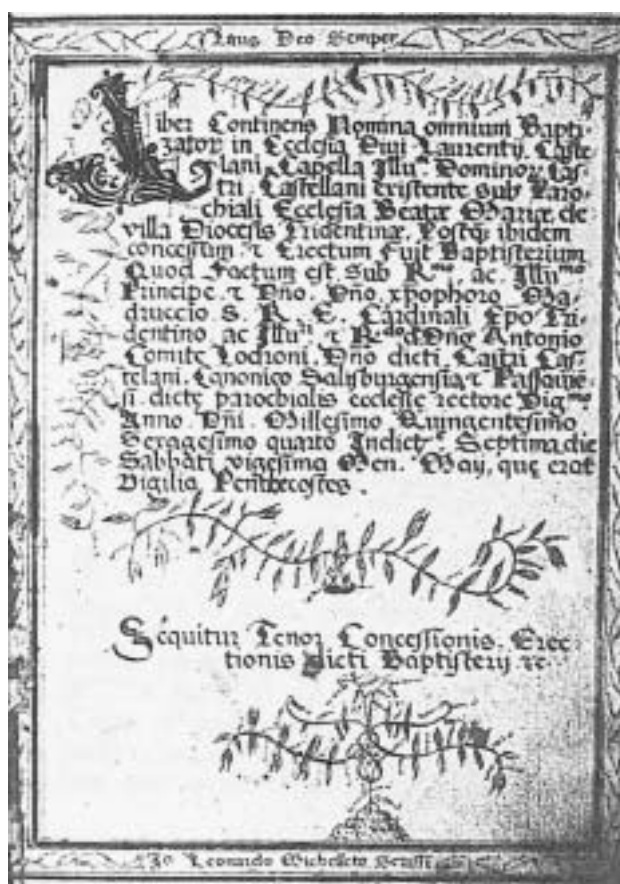 Laus Deo Semper
Liber Continens Nomina omnium Bapti-
zator in Ecclesia Divi Laurentij Caste
lani, Capella Illu. Dominor Cas-
tri Castellani existente sub Paro-
chiali Ecclesia Beatæ Mariæ de
villa Diocesis Tridentinæ, Postq ibidem
concessum & Erectum Fuit Baptisterium
Quod Factum est sub Rmo ac Illumo
Principe & Dno Dno xpophoro Ma-
druccio S. R. E. Cardinali Epo Tri-
dentino ac Illuri & Rdo d. Dno Antonio
Comite Lodroni Dno dicti Castri Cas-
telani, Canonico Salisburgensi &
si dictę parochialis ecclesię rectore Digmo
Anno Dni Millesimo Quingentesimo
Sexagesimo quarto Indict. Septima die
Sabbati vigesima Men. May, quę erat
Vigilia Pentecostes.
Sequitur Tenor Concessionis, Erec-
tionis dicti Baptisterij &c
Jo. Leonardo Michelleto